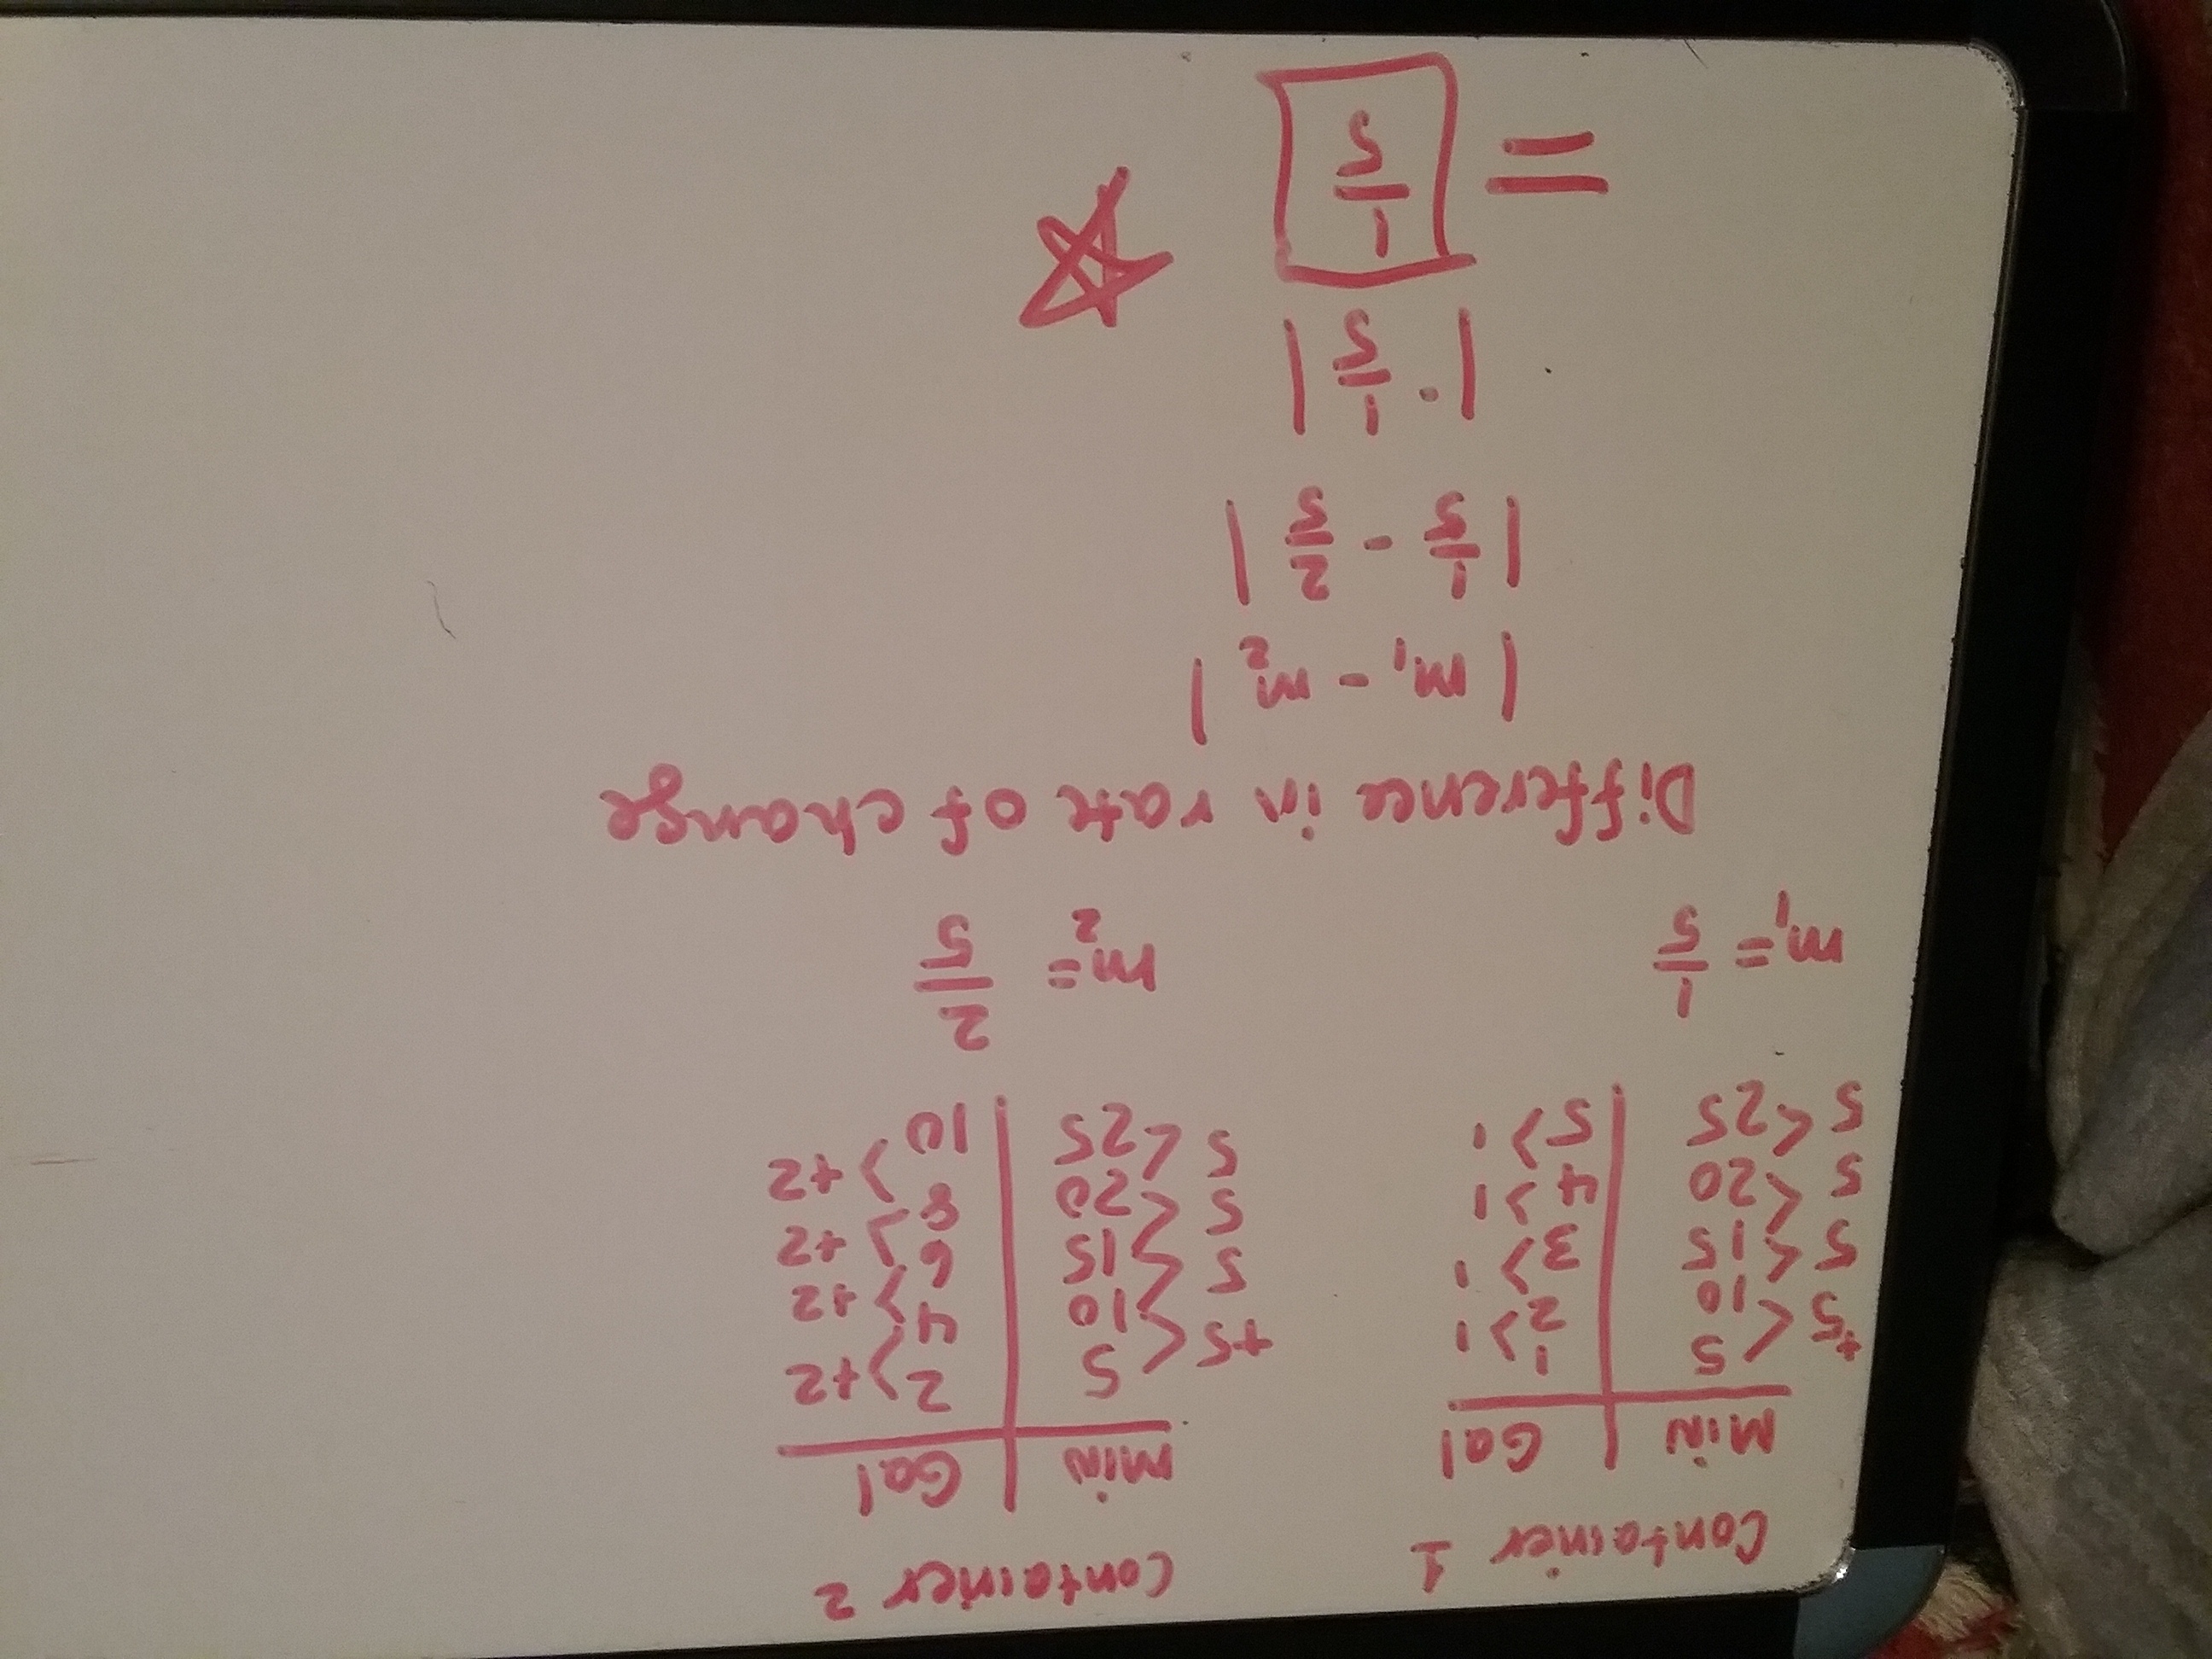 Container 1 Container 2
Min | Gal Min | Gal
+5 < 5 | 1 > 1 +5 < 5 | 2 > +2
5 < 10 | 2 > 1 5 < 10 | 4 > +2
5 < 15 | 3 > 1 5 < 15 | 6 > +2
5 < 20 | 4 > 1 5 < 20 | 8 > +2
25 | 5 25 | 10
m₁ = 1/5 m₂ = 2/5
Difference in rate of change
| m₁ - m₂ |
| 1/5 - 2/5 |
| - 1/5 |
= 1/5